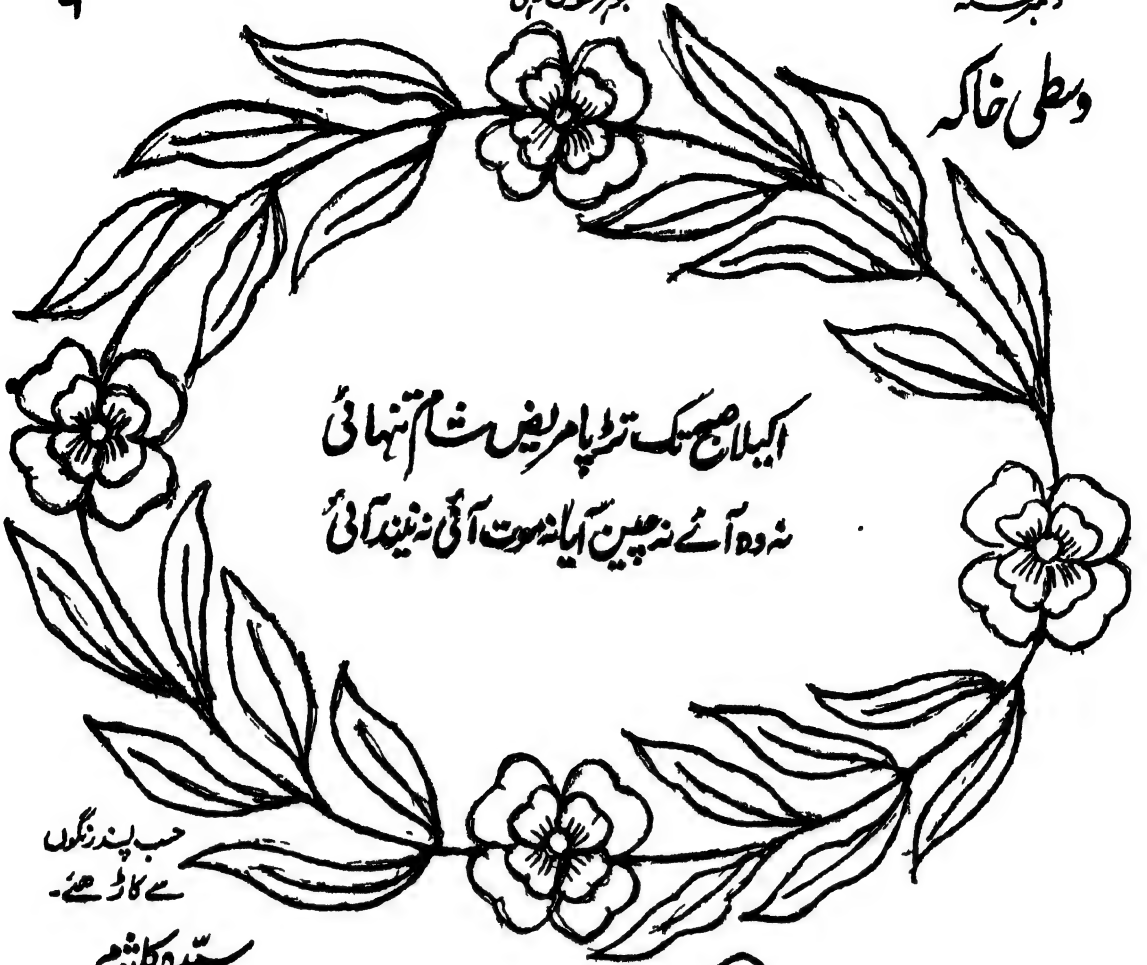 وسطی خاکہ
اکیلا صبح تک تڑپا مریض شام تنہائی
نہ وہ آئے نہ چین آیا نہ موت آئی نہ نیند آئی
حسب پسند رنگوں
سے کاڑھئے۔